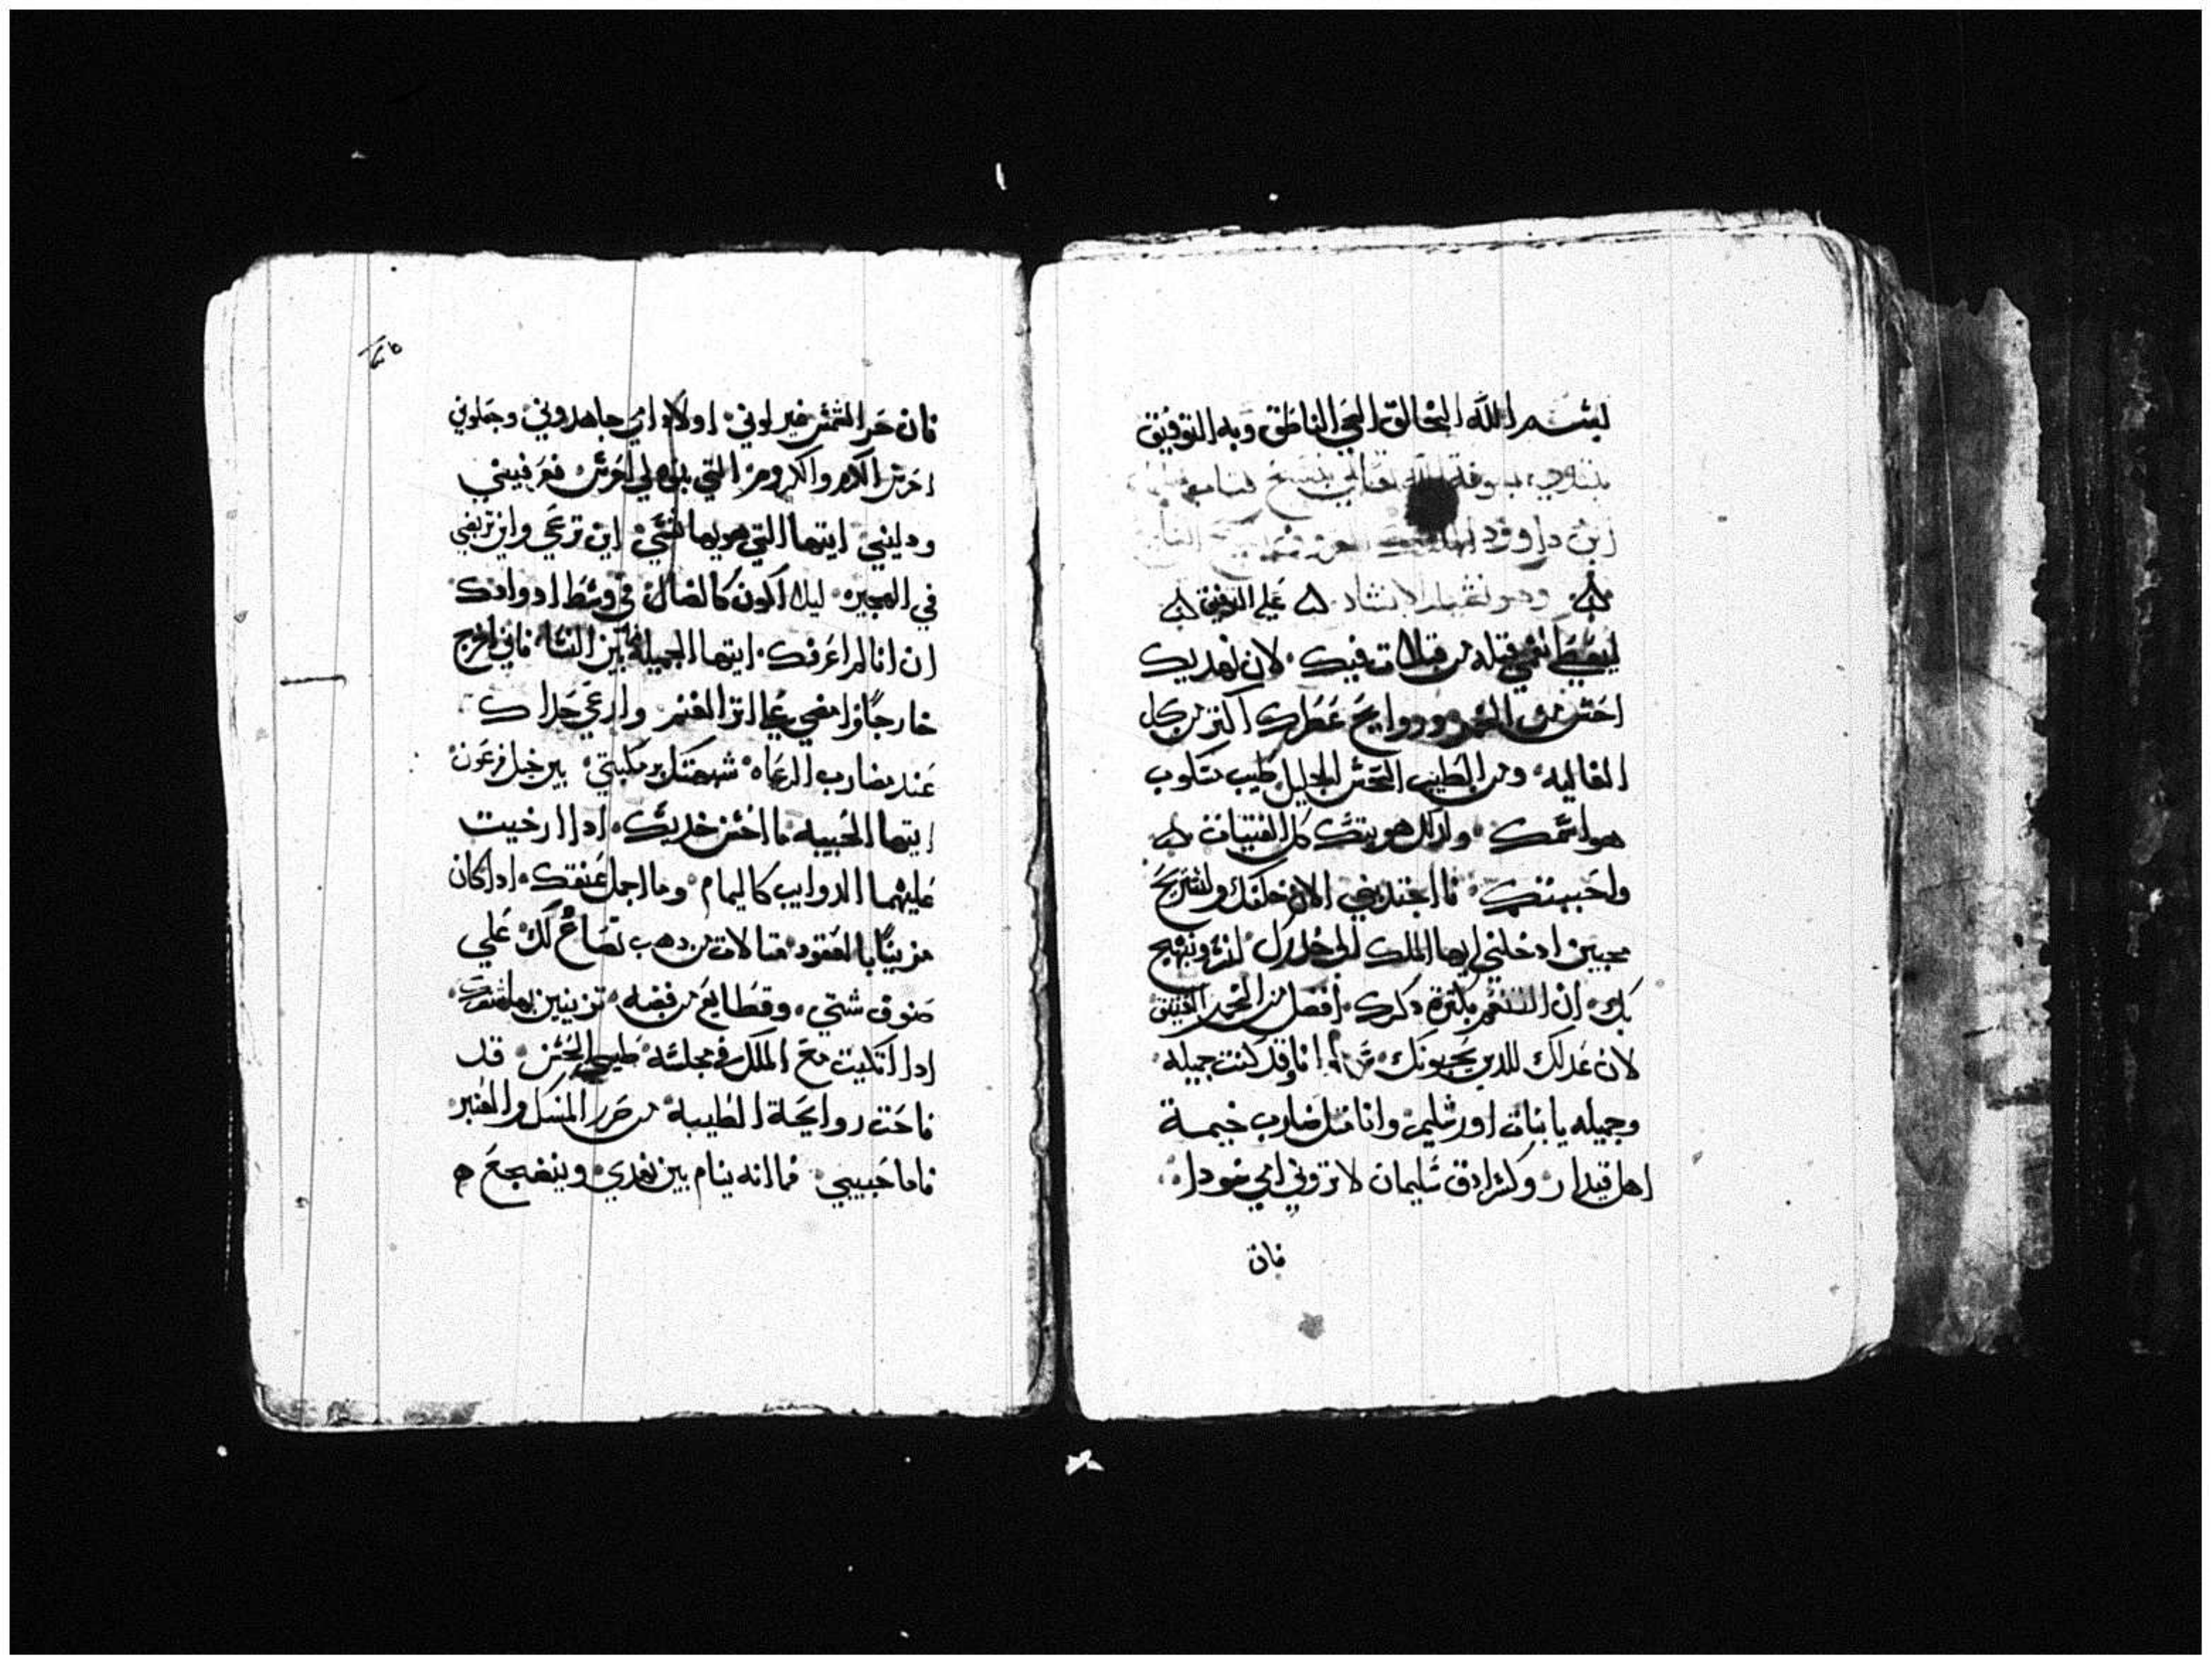 بسم الله الخالق الحي الناطق وبه التوفيق
نبتدي بعون الله تعالى بنسخ كتاب
ابن داوود
وهو نشيد الانشاد على التوفيق
من قبلات فيك لان نهديك
احسن من الخمر وروايح عطرك اكتر من كل
الغاليه ومن الطيب الحسن الجليل طيب مسكوب
هو اسمك ولدلك هويتك كل الفتيات
واحببنك فاجتدبني الان خلفك
ادخلني ايها الملك الى خدرك لنسر ونبتهج
بك ان التنعم بكترة دكرك افضل من الخمر
لان عدلك للدين يحبونك انا وقد كنت جميله
وجميله يا بنات اورشليم وانا متل مضارب خيمة
اهل قيدار وكسرادق سليمان لا تروني اني سودا
فان
فان حر الشمس غير لوني اولاد امي جاهدوني وجعلوني
احرس الكرم والكروم التي بنوها لي احرس فعرفيني
ودليني ايتها التي هويها نفسي اين ترعي واين تربضي
في الهجيره ليلا اكون كالضال في وسط ادوادك
ان انا لم اعرفك ايتها الجميله بين النسا فاني اخرج
خارجًا وامضي على اتر الغنم وارعي جداك
عند مضارب الرعاه شبهتك بمركبتي بين خيل فرعون
ايتها الحبيبه ما احسن خديك ادا ارخيت
عليهما الدوايب كاليمام وما اجمل عنقك ادا كان
مزينًا بالعقود متالات من دهب تصاغ لك علي
صنوف شتي وقطايع من فضه تزينين بها شعرك
ادا اتكيت مع الملك في مجلسه طيب الحسن قد
فاحت روايحة الطيبه من المسك والعنبر
فاما حبيبي فما انه ينام بين نهدي وينضجع